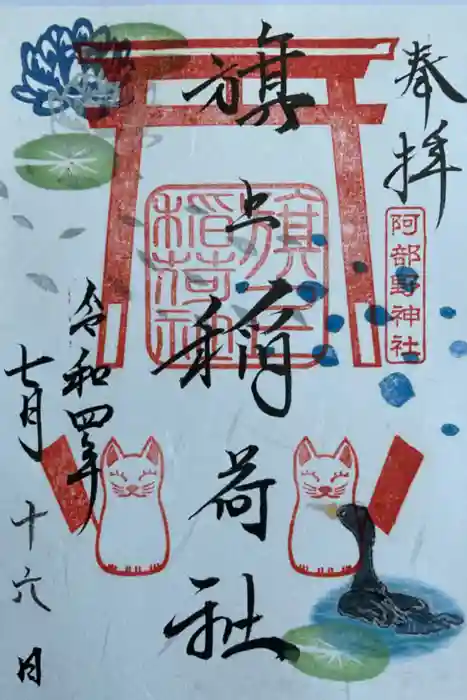 奉拝
阿部野神社
旗上稲荷社
旗上稲荷社
令和四年
七月十六日